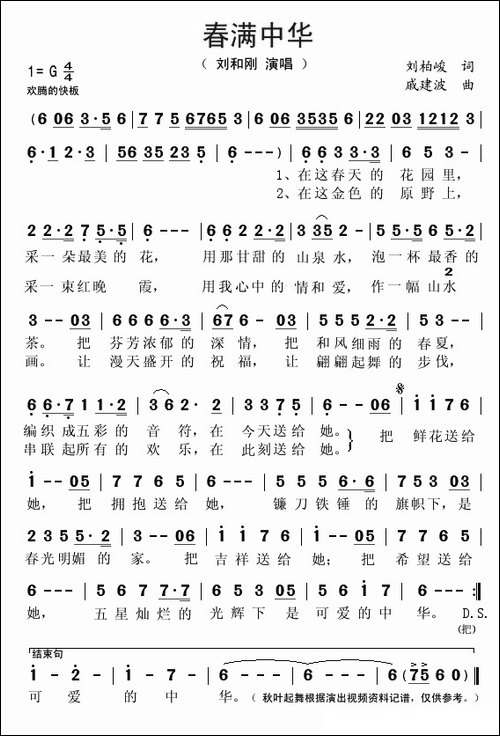 春满中华
（ 刘和刚 演唱 ）
1= G 4/4
刘柏峻 词
欢腾的快板
戚建波 曲
(6 06 3·5 6 | 7 7 5 6765 3 | 6 06 3535 6 | 22 03 1212 3 |
6·1 2·3 | 56 35 23 5 | 6 - - -) | 66 3 3·3 | 6 5 3 - |
1、在这春天的 花园里，
2、在这金色的 原野上，
2 2·2 7 5·5 | 6 - - - | 6 6 2 2·2 | 3 35 2 - | 5 5·5 6 5·2 |
采一朵最美的 花， 用那甘甜的 山泉水， 泡一杯最香的
采一束红晚 霞， 用我心中的 情和爱， 作一幅山水
2
3 - - 03 | 6 6 6 6·6 | 67 6 - 03 | 2 2 2 2·2 | 5 5 3 - |
茶。 把 芬芳浓郁的 深情， 把 和风细雨的 春夏，
画。 让 漫天盛开的 祝福， 让 翩翩起舞的 步伐，
6 6·7 1 1·2 | 36 2· 2 | 3 3 7 5 | 6 - - 06 | 1 1 7 6 |
编织成五彩的 音符，在 今天送给 她。 把 鲜花送给
串联起所有的 欢乐，在 此刻送给 她。
1 - - 05 | 5 2 5 7 | 6 - - - | 5 5 5 6·6 | 7 5 3 03 |
她， 把 拥抱送给 她， 镰刀铁锤的 旗帜下，是
2 3 5 5·2 | 3 - - 06 | 1 1 7 6 | 5 - - 03 | 6 7 6 5 |
春光明媚的 家。 把 吉祥送给 她； 把 希望送给
6 - - - | 5 6 7 7·7 | 6 5 3 05 | 5 6 1 7 | 6 - - - :||
她， 五星灿烂的 光辉下 是 可爱的中 华。 D.S.
(把)
结束句
1 - 2 - | 1 - 7 - | 6 - - - | 6 - - - | 6 (75 6 0) ||
可 爱 的 中 华。（ 秋叶起舞根据演出视频资料记谱，仅供参考。）